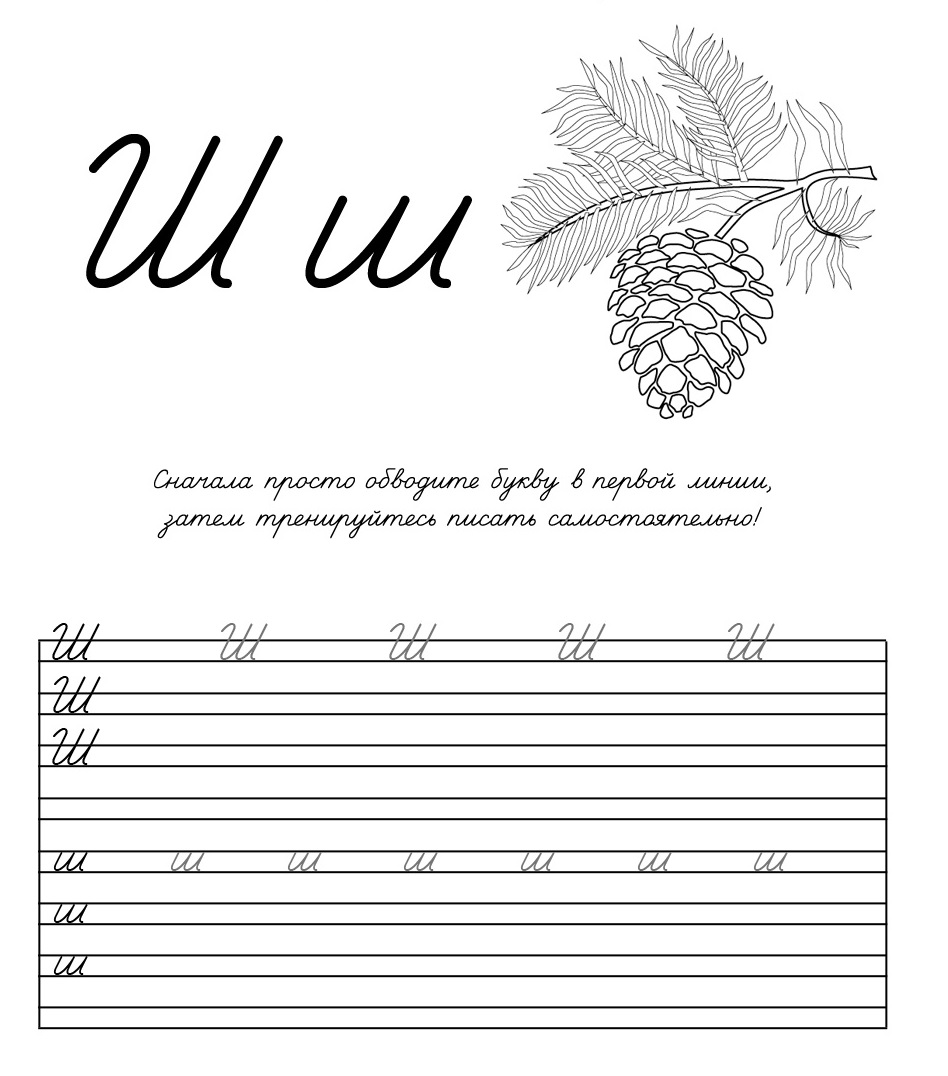 Ш ш
Сначала просто обводите букву в первой линии,
затем тренируйтесь писать самостоятельно!
Ш Ш Ш Ш Ш
Ш
Ш
ш ш ш ш ш ш ш
ш
ш